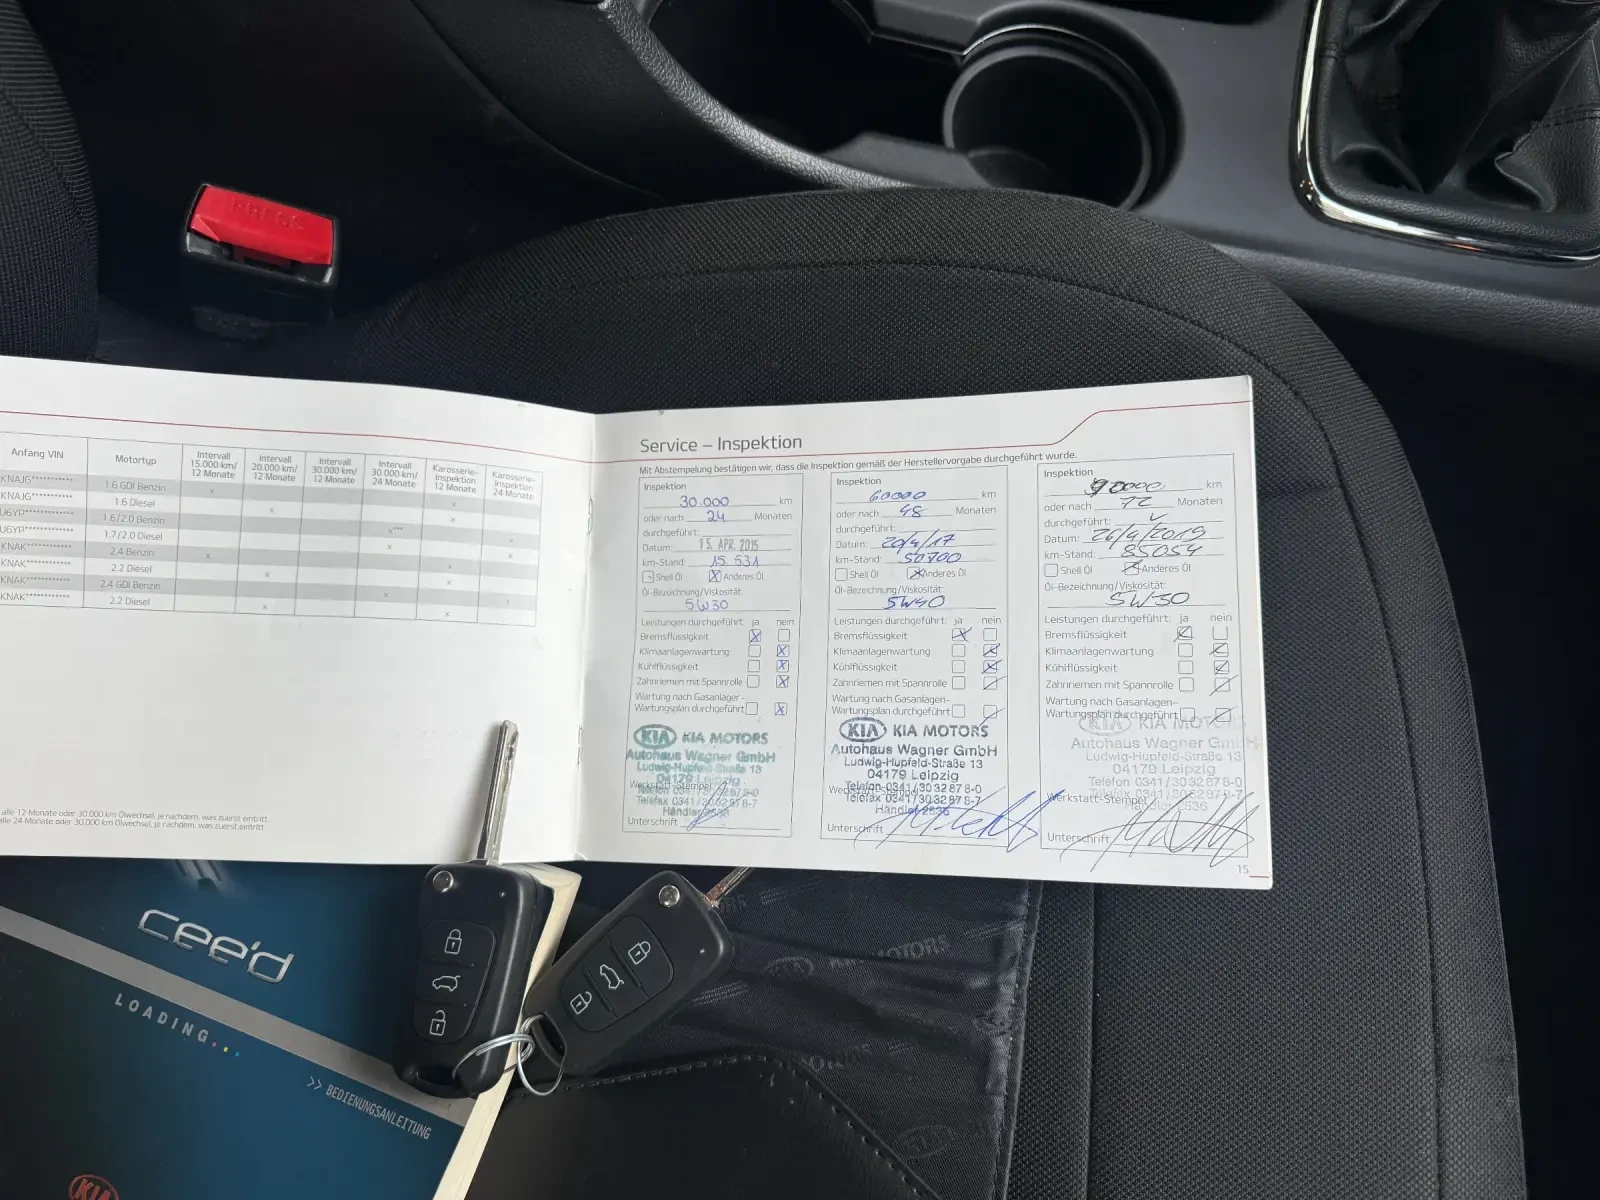 PRESS
Anfang VIN
Motortyp
Intervall 15.000 km/ 12 Monate
Intervall 20.000 km/ 12 Monate
Intervall 30.000 km/ 12 Monate
Intervall 30.000 km/ 24 Monate
Karosserie- Inspektion 12 Monate
Karosserie- Inspektion 24 Monate
KNAJG*********** 1.6 GDI Benzin x x
KNAJG*********** 1.6 Diesel x x
U6YP*********** 1.6/2.0 Benzin x*** x
U6YP*********** 1.7/2.0 Diesel x x
KNAK*********** 2.4 Benzin x x
KNAK*********** 2.2 Diesel x x
KNAK*********** 2.4 GDI Benzin x x
KNAK*********** 2.2 Diesel x x
alle 12 Monate oder 30.000 km Ölwechsel, je nachdem, was zuerst eintritt
alle 24 Monate oder 30.000 km Ölwechsel, je nachdem, was zuerst eintritt
Service – Inspektion
Mit Abstempelung bestätigen wir, dass die Inspektion gemäß der Herstellervorgabe durchgeführt wurde.
Inspektion
30.000 km
oder nach 24 Monaten
durchgeführt:
Datum: 15. APR. 2015
km-Stand: 15 531
Shell Öl X Anderes Öl
Öl-Bezeichnung/Viskosität:
5W30
Leistungen durchgeführt: ja nein
Bremsflüssigkeit X
Klimaanlagenwartung X
Kühlflüssigkeit X
Zahnriemen mit Spannrolle X
Wartung nach Gasanlagen-
Wartungsplan durchgeführt X
KIA KIA MOTORS
Autohaus Wagner GmbH
Ludwig-Hupfeld-Straße 13
04179 Leipzig
Werkstatt-Stempel
Telefon 0341/30 32 87 8-0
Telefax 0341/30 32 87 8-7
Händler 2536
Unterschrift
Inspektion
60000 km
oder nach 48 Monaten
durchgeführt:
Datum: 20/4/17
km-Stand: 50700
Shell Öl X Anderes Öl
Öl-Bezeichnung/Viskosität:
5W40
Leistungen durchgeführt: ja nein
Bremsflüssigkeit X
Klimaanlagenwartung X
Kühlflüssigkeit X
Zahnriemen mit Spannrolle
Wartung nach Gasanlagen-
Wartungsplan durchgeführt
KIA KIA MOTORS
Autohaus Wagner GmbH
Ludwig-Hupfeld-Straße 13
04179 Leipzig
Telefon 0341/30 32 87 8-0
Werkstatt-Stempel
Telefax 0341/30 32 87 8-7
Händler 2536
Unterschrift
Inspektion
90000 km
oder nach 72 Monaten
durchgeführt:
Datum: 26/4/2019
km-Stand: 85054
Shell Öl Anderes Öl
Öl-Bezeichnung/Viskosität:
5W30
Leistungen durchgeführt: ja nein
Bremsflüssigkeit
Klimaanlagenwartung
Kühlflüssigkeit
Zahnriemen mit Spannrolle
Wartung nach Gasanlagen-
Wartungsplan durchgeführt
KIA KIA MOTORS
Autohaus Wagner GmbH
Ludwig-Hupfeld-Straße 13
04179 Leipzig
Telefon 0341/30 32 87 8-0
Telefax 0341/30 32 87 8-7
Werkstatt-Stempel
Händler 2536
Unterschrift
15
cee'd
LOADING...
>> BEDIENUNGSANLEITUNG
KIA
KIA MOTORS